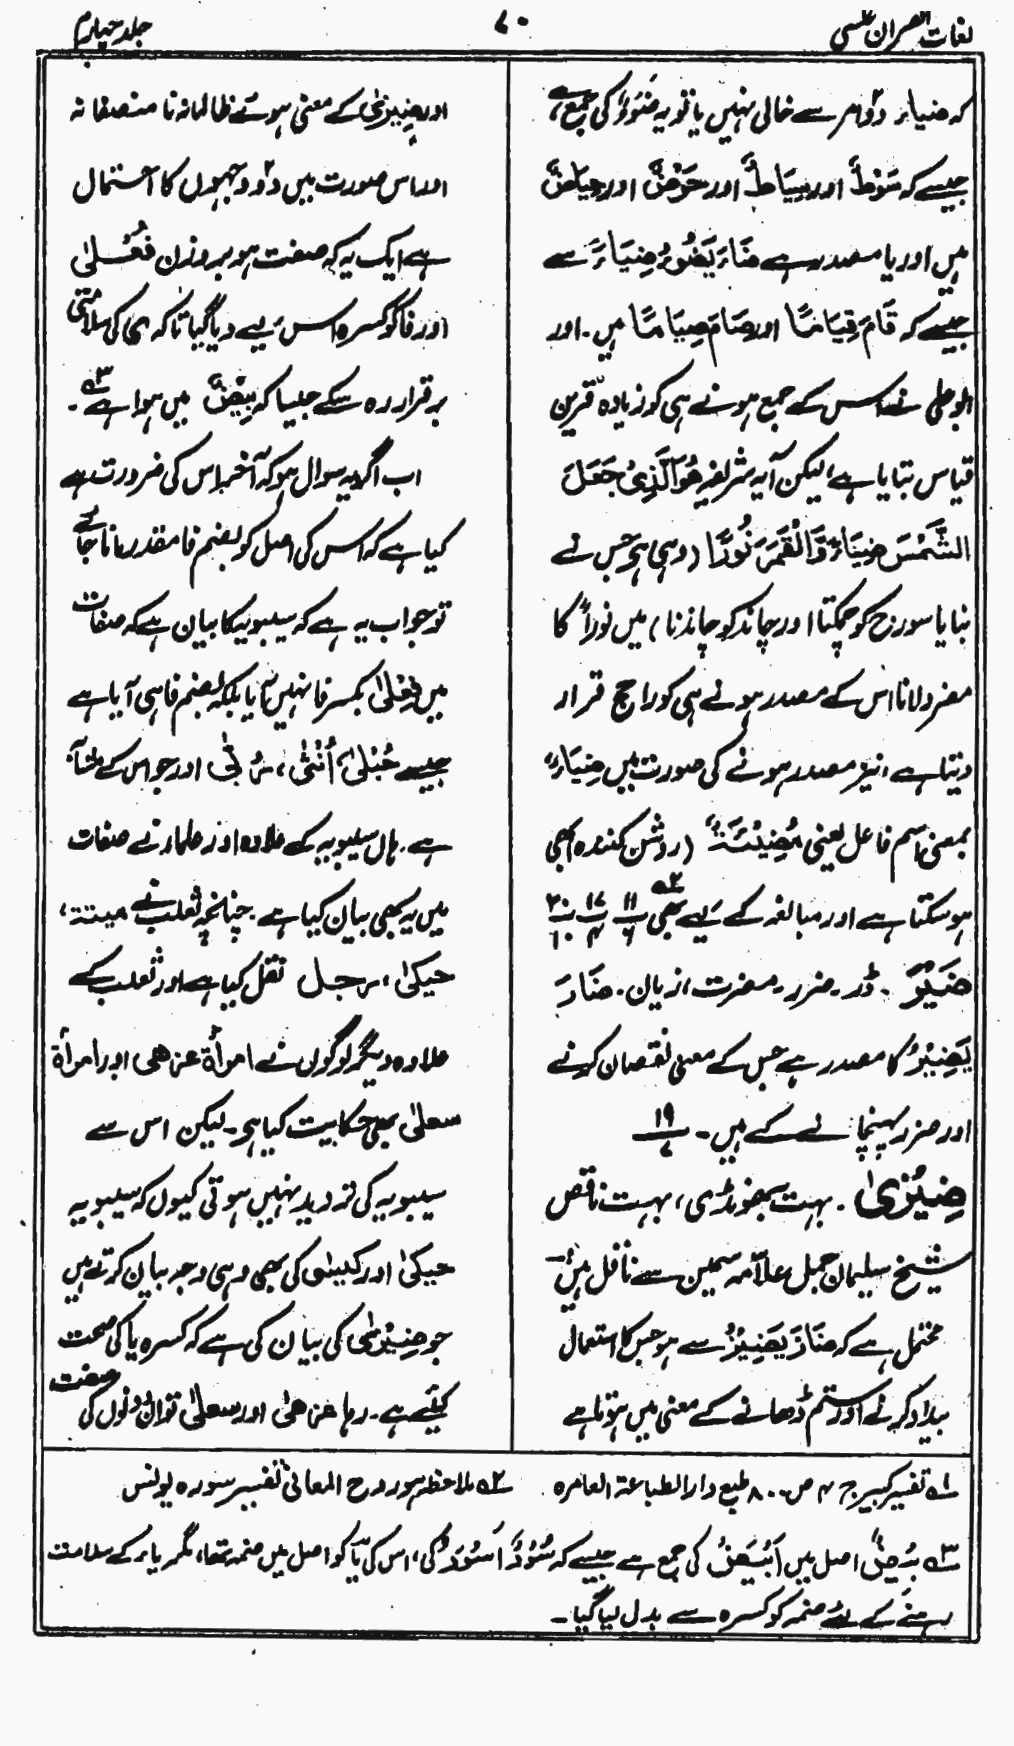 لغات القرآن
۷۰
جلد چہارم
کہ ضیاء دو امر سے خالی نہیں یا تو یہ ضَوْءٌ کی جمع ہے
جیسے کہ سَوْطٌ اور سِیَاطٌ اور حَوْضٌ اور حِیَاضٌ
میں اور یا مصدر ہے ضَاءَ یَضُوْءُ ضِیَاءً سے
جیسے کہ قَامَ قِیَامًا اور صَامَ صِیَامًا میں۔ اور
ابو علی نے اس کے جمع ہونے ہی کو زیادہ قرین
قیاس بتایا ہے، لیکن آیہ شریفہ هُوَ الَّذِیْ جَعَلَ
الشَّمْسَ ضِیَاءً وَّالْقَمَرَ نُوْرًا (وہی ہے جس نے
بنایا سورج کو چمکتا اور چاند کو چاندنا) میں نوراً کا
مفرد لانا اس کے مصدر ہونے ہی کو راجح قرار
دیتا ہے، نیز مصدر ہونے کی صورت میں ضِیَاءً
بمعنی اسم فاعل یعنی مُضِیْئَةً (روشن کنندہ) بھی
ہو سکتا ہے اور مبالغہ کے لیے بھی ۲ھ ۱۱/۶ ۱۷/۴ ۲۰/۱۰
ضَیْرَ۔ ڈر۔ ضرر۔ مضرت، زیان۔ ضَارَ
یَضِیْرُ کا مصدر ہے جس کے معنی نقصان کرنے
اور ضرر پہنچانے کے ہیں۔ ۱۹/۷
ضِیْزٰی۔ بہت بھونڈی، بہت ناقص
شیخ سلیمان جمل علامہ سمین سے ناقل ہیں۔
محتمل ہے کہ ضَازَ یَضِیْزُ سے ہو جس کا استعمال
بیداد کرنے اور ستم ڈھانے کے معنی میں ہوتا ہے
اور ضِیْزٰی کے معنی ہوئے ظالمانہ نا منصفانہ
اور اس صورت میں دو وجہوں کا احتمال
ہے ایک یہ کہ صفت ہو بر وزن فُعْلٰی
اور فا کو کسرہ اس لیے دیا گیا تاکہ ی کی سلامتی
برقرار رہ سکے جیسا کہ بِیْضٌ میں ہوا ہے ۳ھ۔
اب اگر یہ سوال ہو کہ آخر اس کی ضرورت ہے
کیا ہے کہ اس کی اصل کو بضم فا مقدر مانا جائے
تو جواب یہ ہے کہ سیبویہ کا بیان ہے کہ صفات
میں فِعْلٰی بکسر فا نہیں آیا بلکہ بضم فا ہی آیا ہے
جیسے حُبْلٰی، اُنْثٰی، رُبّٰی اور جو اس کے مشابہ
ہے۔ ہاں سیبویہ کے علاوہ اور علماء نے صفات
میں یہ بھی بیان کیا ہے۔ چنانچہ ثعلب نے میتة،
حیکیٰ، رجل نقل کیا ہے اور ثعلب کے
علاوہ دیگر لوگوں نے امرأة عزهی اور امرأة
سعلیٰ بھی حکایت کیا ہی۔ لیکن اس سے
سیبویہ کی تردید نہیں ہوتی کیوں کہ سیبویہ
حیکیٰ اور کیصیٰ کی بھی وہی وجہ بیان کرتے ہیں
جو ضِیْزٰی کی بیان کی ہے کہ کسرہ یا کی صحت
کیلئے ہے۔ رہا عزهیٰ اور سعلیٰ تو ان دونوں کی صفت
۱ھ تفسیر کبیر ج ۴ ص ۸۰۰ طبع دار الطباعة العامرہ ۲ھ ملاحظہ ہو روح المعانی تفسیر سورہ یونس
۳ھ بِیْضٌ اصل میں اَبْیَضُ کی جمع ہے جیسے کہ سُوْدٌ اَسْوَدُ کی، اس کی با کو اصل میں ضمہ تھا، مگر یاء کے سلامت
رہنے کے لئے ضمہ کو کسرہ سے بدل لیا گیا۔